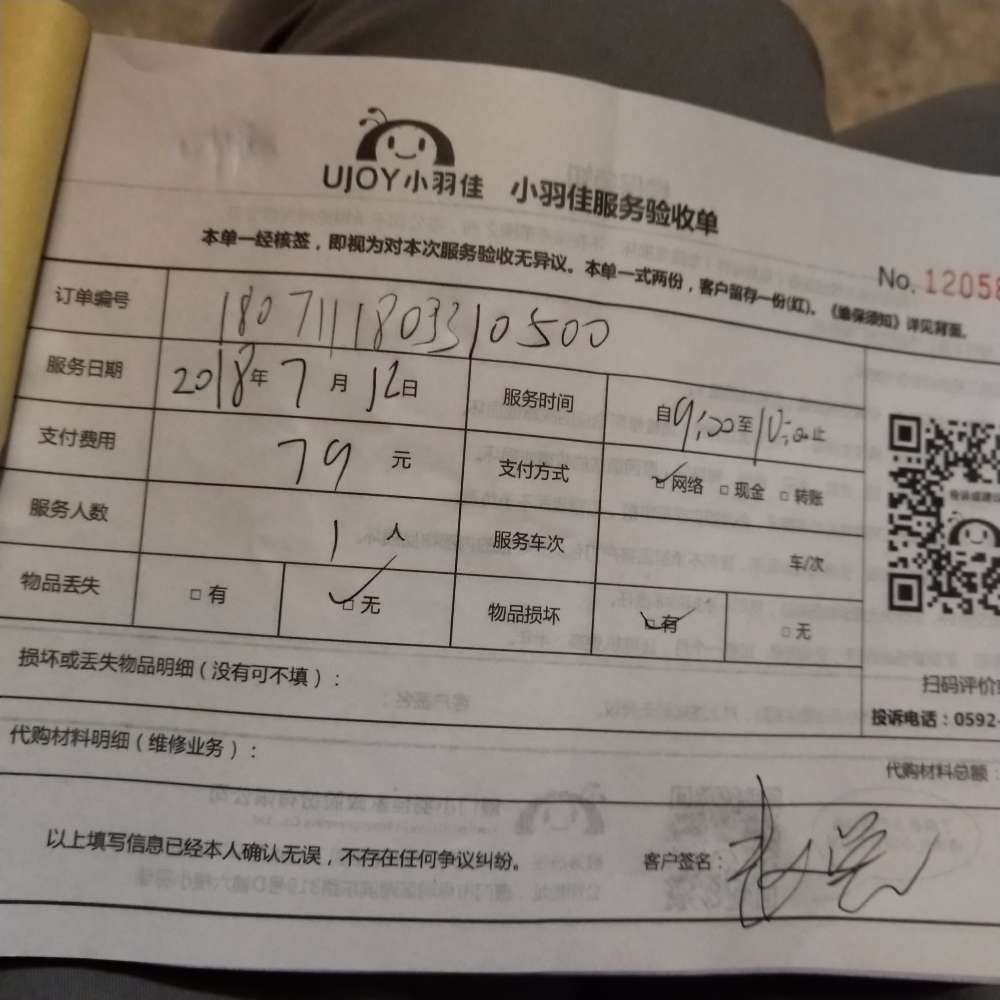 UJOY小羽佳 小羽佳服务验收单
No. 12058
本单一经核签，即视为对本次服务验收无异议。本单一式两份，客户留存一份(红)。《维保须知》详见背面。
订单编号 1807111803310500
服务日期 2018年7月12日 服务时间 自9:00至10:00止
支付费用 79元 支付方式 网络 现金 转账
服务人数 1人 服务车次 车/次
物品丢失 有 无 物品损坏 有 无
损坏或丢失物品明细（没有可不填）：
扫码评价
投诉电话：0592-
代购材料明细（维修业务）：
代购材料总额：
以上填写信息已经本人确认无误，不存在任何争议纠纷。 客户签名：